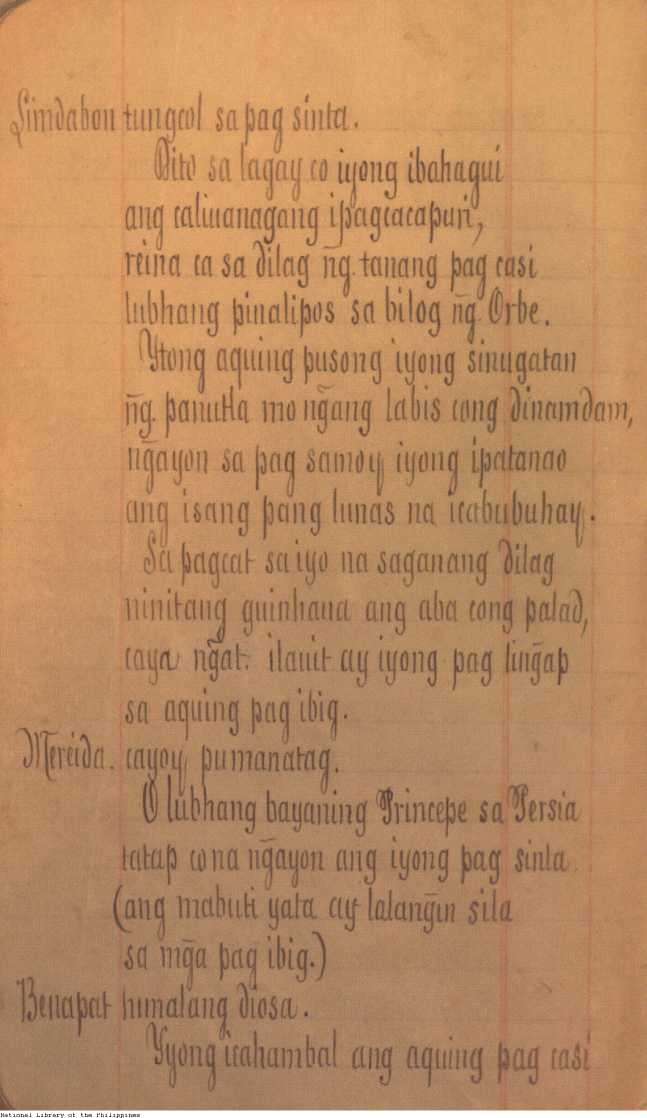 Limdabon tungcol sa pag sinta.
Dito sa lagay co iyong ibahagui
ang caliuanagang ipagcacapuri,
reina ca sa dilag n̄g. tanang pag casi
lubhang pinalipos sa bilog n̄g. Orbe.
Ytong aquing pusong iyong sinugatan
n̄g. panutla mo nḡang labis cong dinamdam,
nḡayon sa pag samoy iyong ipatanao
ang isang pang lunas na icabubuhay.
Sa pagcat sa iyo na saganang dilag
ninitang guinhaua ang aba cong palad,
caya nḡat. ilauit ay iyong pag linḡap
sa aquing pag ibig.
Mereida. cayoy pumanatag.
O lubhang bayaning Princepe sa Persia
tatap co na nḡayon ang iyong pag sinta
(ang mabuti yata ay lalanḡin sila
sa mḡa pag ibig.)
Benapat himalang diosa.
Yyong icahambal ang aquing pag casi
National Library of the Philippines